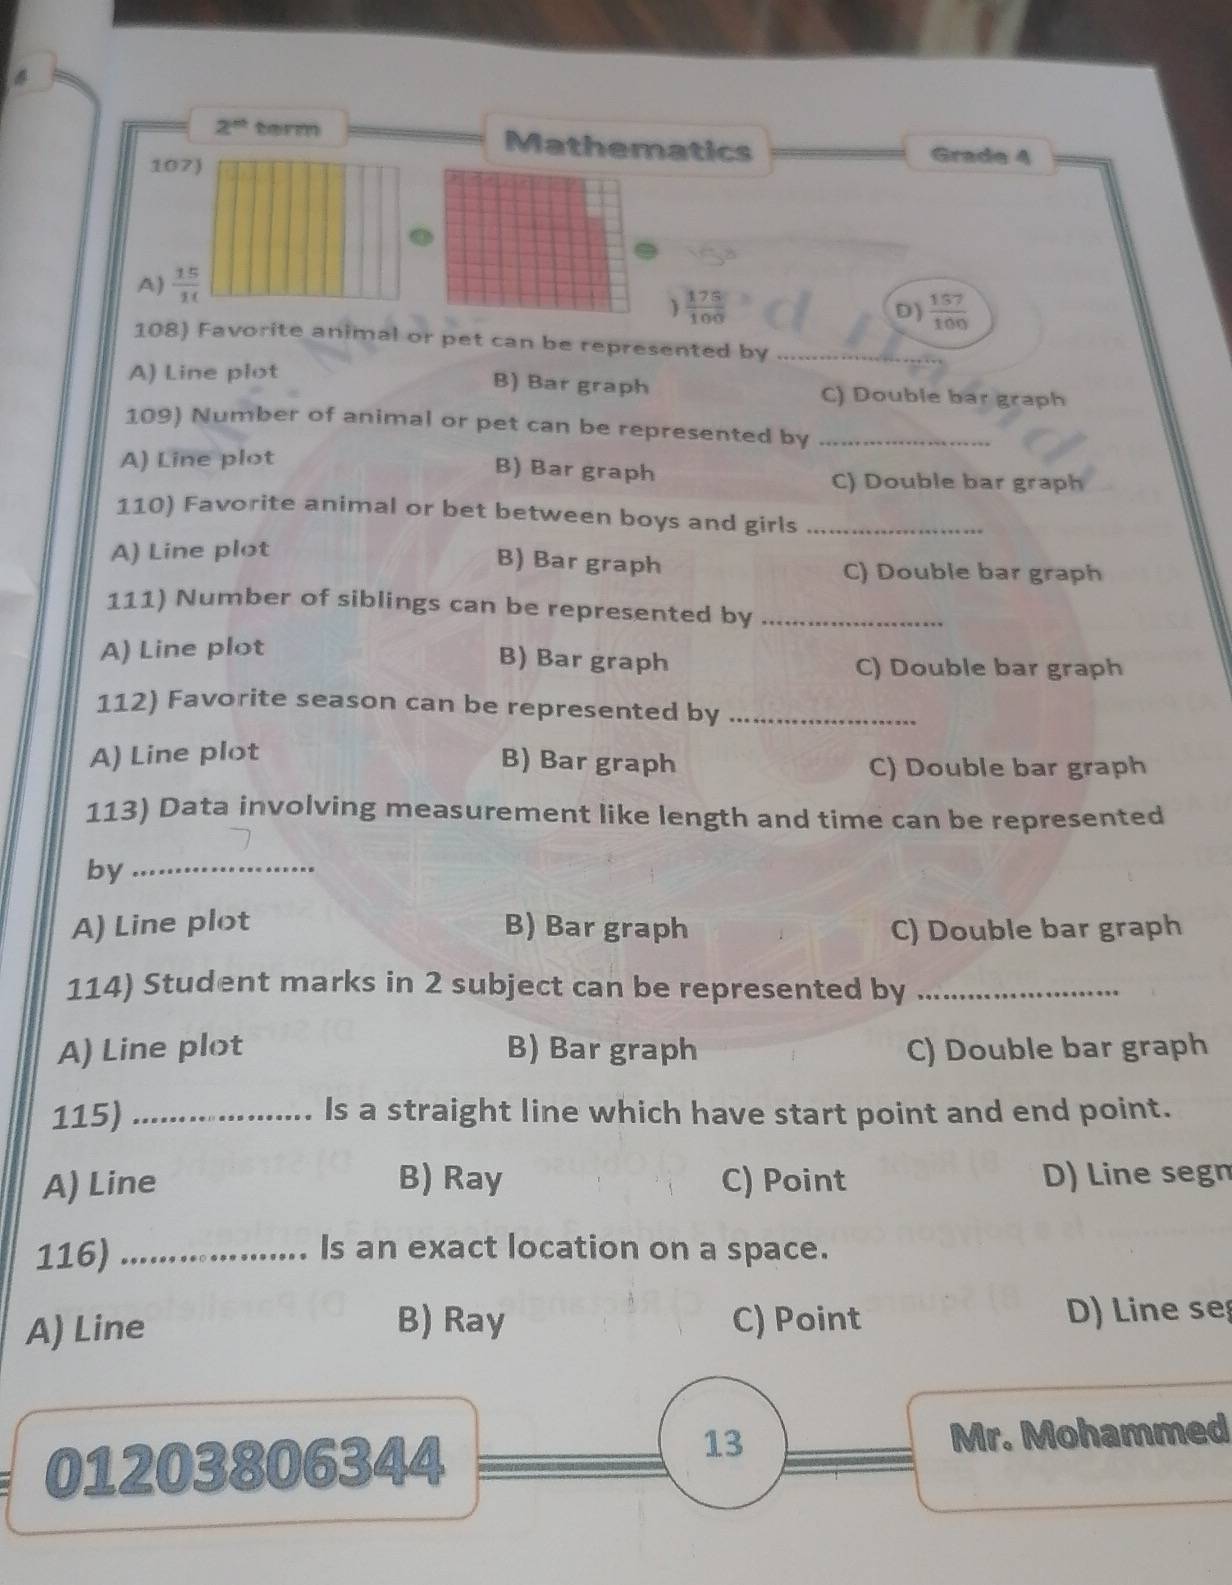 4
2nd term
Mathematics
Grade 4
107)
A) 15/1
) 175/100
D) 157/100
108) Favorite animal or pet can be represented by ........................
A) Line plot B) Bar graph C) Double bar graph
109) Number of animal or pet can be represented by ........................
A) Line plot B) Bar graph C) Double bar graph
110) Favorite animal or bet between boys and girls ........................
A) Line plot B) Bar graph C) Double bar graph
111) Number of siblings can be represented by ........................
A) Line plot B) Bar graph C) Double bar graph
112) Favorite season can be represented by ........................
A) Line plot B) Bar graph C) Double bar graph
113) Data involving measurement like length and time can be represented
by ......................
A) Line plot B) Bar graph C) Double bar graph
114) Student marks in 2 subject can be represented by ........................
A) Line plot B) Bar graph C) Double bar graph
115) .................... Is a straight line which have start point and end point.
A) Line B) Ray C) Point D) Line segm
116) .................... Is an exact location on a space.
A) Line B) Ray C) Point D) Line seg
01203806344
13
Mr. Mohammed